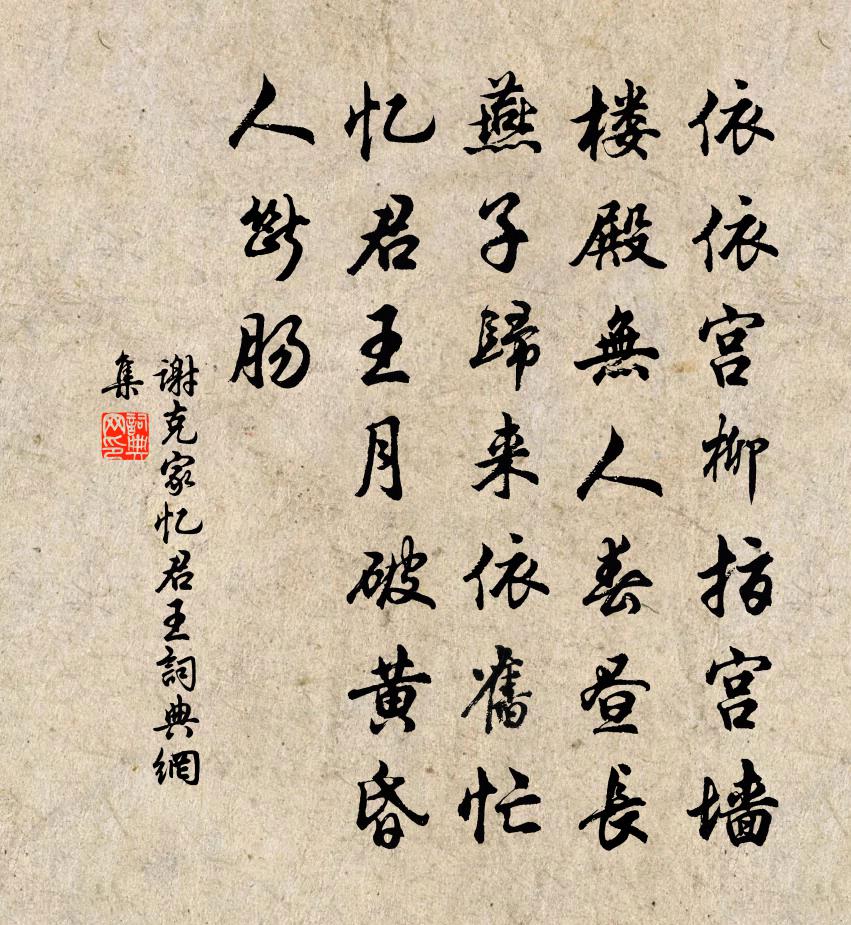 依依宫柳拂宫墙
楼殿無人春昼長
燕子歸来依舊忙
忆君王月破黄昏
人斷肠
謝克家忆君王詞典網
集
詞典
网印